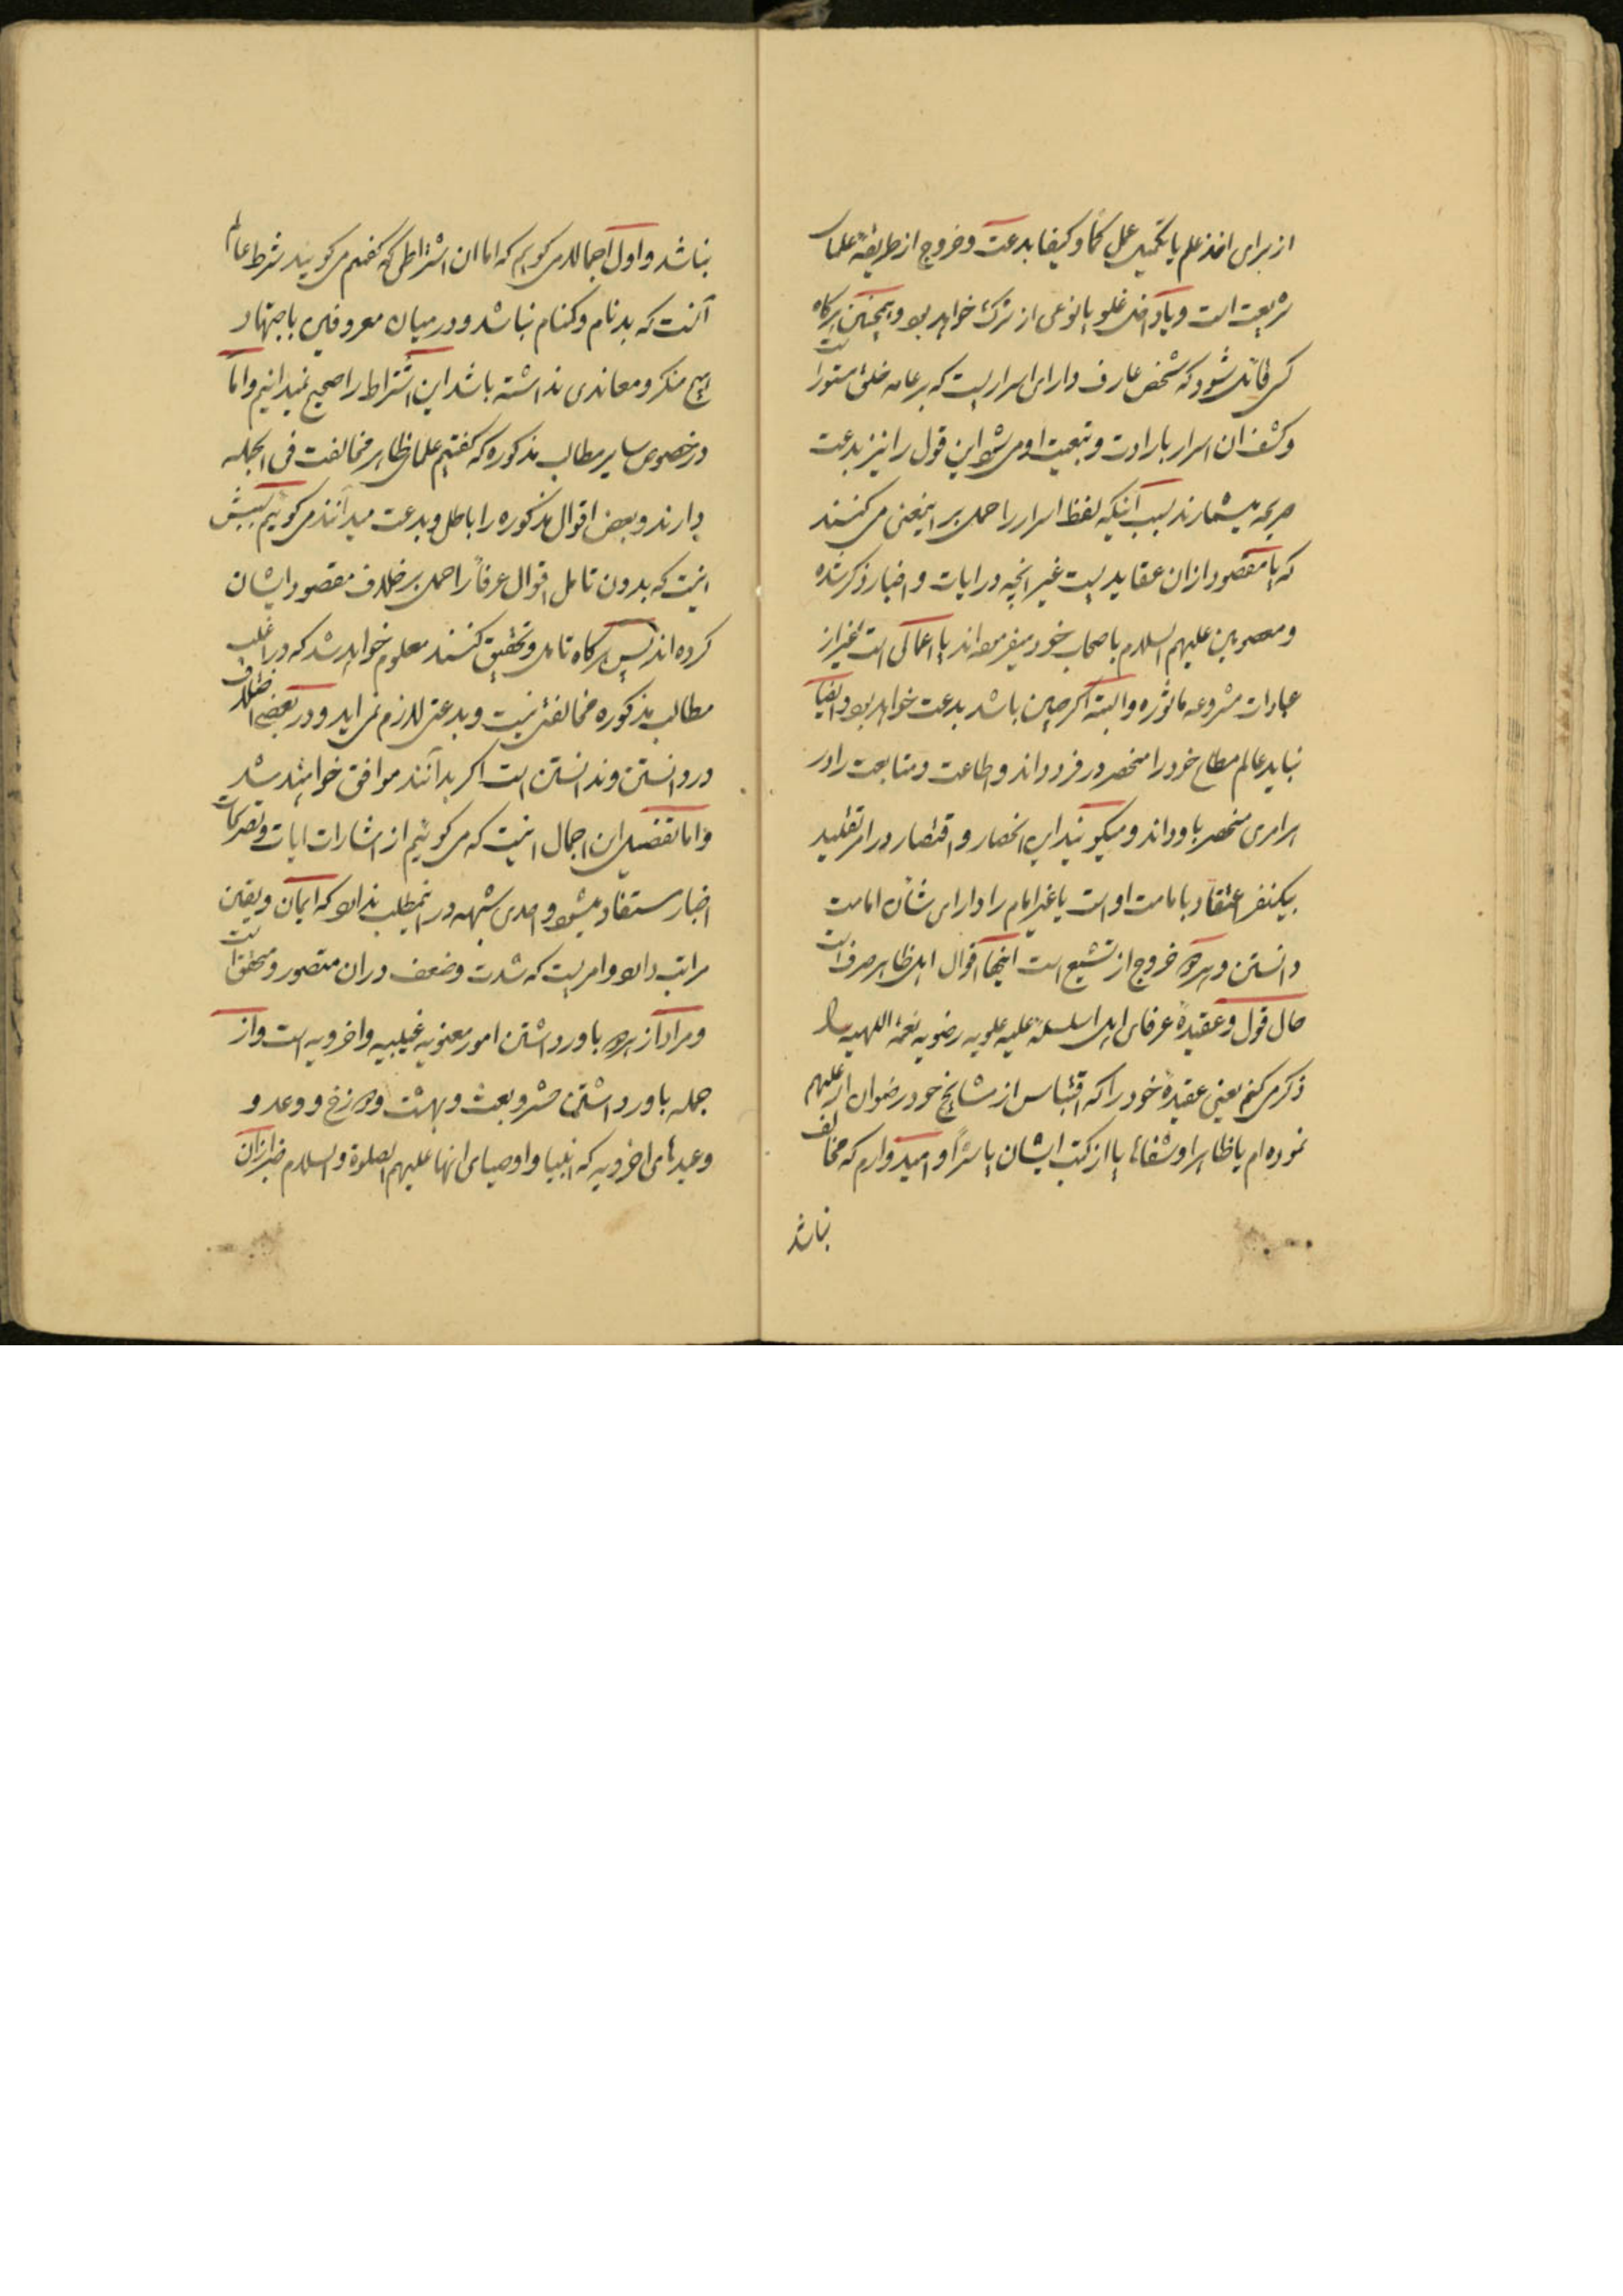 از برای اخذ علم یا تکمیل عمل کمّا و کیفا بدعت و خروج از طریقهٔ علمای
شریعت است و یا داخل غلو یا نوعی از شرک خواهد بود و همچنین هرگاه
کسی قائل شود که شخص عارف دارای اسراریست که بر عامه خلق مستور است
و کشف ان اسرار بارادت و تبعیت او می شود این قول را نیز بدعت
صریحه میشمارند بسبب آنکه لفظ اسرار را حمل بر اینمعنی می کنند
که یا مقصود ازان عقایدیست غیر انچه در ایات و اخبار ذکر شده
و معصومین علیهم السلام باصحاب خود میفرموده اند یا اعمالی است غیر از
عبادات مشروعه ماثوره و البته اگر چنین باشد بدعت خواهد بود و ایضا
نباید عالم مطاع خود را منحصر در فرد داند و اطاعت و متابعت را در
هر امری منحصر باو داند و میگویند این انحصار و اقتصار در امر تقلید
بیکنفر اعتقاد بامامت او است یا غیر امام را دارای شأن امامت
دانستن و هر دو خروج از تشیع است اینها اقوال اهل ظاهر صرف است
حال قول و عقیدهٔ عرفای اهل سلسلهٔ علیه علویه رضویه نعمة اللهیه را
ذکر می کنم یعنی عقیدهٔ خود را که اقتباس از مشایخ خود رضوان الله علیهم
نموده ام یا ظاهرا و شفاها یا از کتب ایشان یا سرّا و امیدوارم که مخالف
نباشد
نباشد و اول اجمالا می گویم که اما ان اشتراطی که گفتیم می گویند شرط عالم
آنست که بدنام و گمنام نباشد و در میان معروفین باجتهاد
هیچ منکر و معاندی نداشته باشد این اشتراط را صحیح نمیدانیم و اما
در خصوص سایر مطالب مذکوره که گفتیم علمای ظاهر مخالفت فی الجمله
دارند و بعض اقوال مذکوره را باطل و بدعت میدانند می گوئیم سببش
اینست که بدون تامل اقوال عرفا را حمل بر خلاف مقصود ایشان
کرده اند پس هرگاه تامل و تحقیق کنند معلوم خواهد شد که در اغلب
مطالب مذکوره مخالفتی نیست و بدعتی لازم نمی اید و در بعضی اختلاف
در دانستن و ندانستن است اگر بدانند موافق خواهند شد
و اما تفصیل این اجمال اینست که می گوئیم از اشارات ایات و تصریحات
اخبار مستفاد میشود و احدی شبهه در اینمطلب ندارد که ایمان و یقین
مراتب دارد و امریست که شدت و ضعف دران متصور و محقق است
و مراد از هر دو باور داشتن امور معنویه غیبیه و اخرویه است و از
جمله باور داشتن حشر و بعث و بهشت و دوزخ و وعد و
وعیدهای اخرویه که انبیا و اوصیای انها علیهم الصلوة و السلام خبر ازان